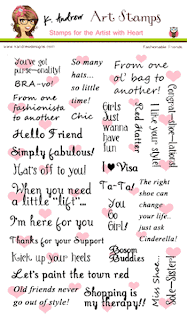 K. Andrew Art Stamps
Stamps for the Artist with Heart
Fashionable Friends
You've got
purse-onality!
BRA-vo!
From one
fashionista
to another
Chic!
So many
hats...
so little
time!
From one
ol' bag to
another!
Girls
Just
wanna
have
fun
Red Hatter
I like your style!
Congrat-shoe-lations!
Hello Friend
Simply fabulous!
Hat's off to you!
I Visa
When you need
a little "lift"...
Ta-Ta!
You
Go
Girl!
The right
shoe can
change
your life..
just ask
Cinderella!
I'm here for you
Thanks for your Support
Kick up your heels
Bosom
Buddies
Let's paint the town red
Old friends never
go out of style!
Shopping is
my therapy!!
Miss Shoe...
Sole-Sister!